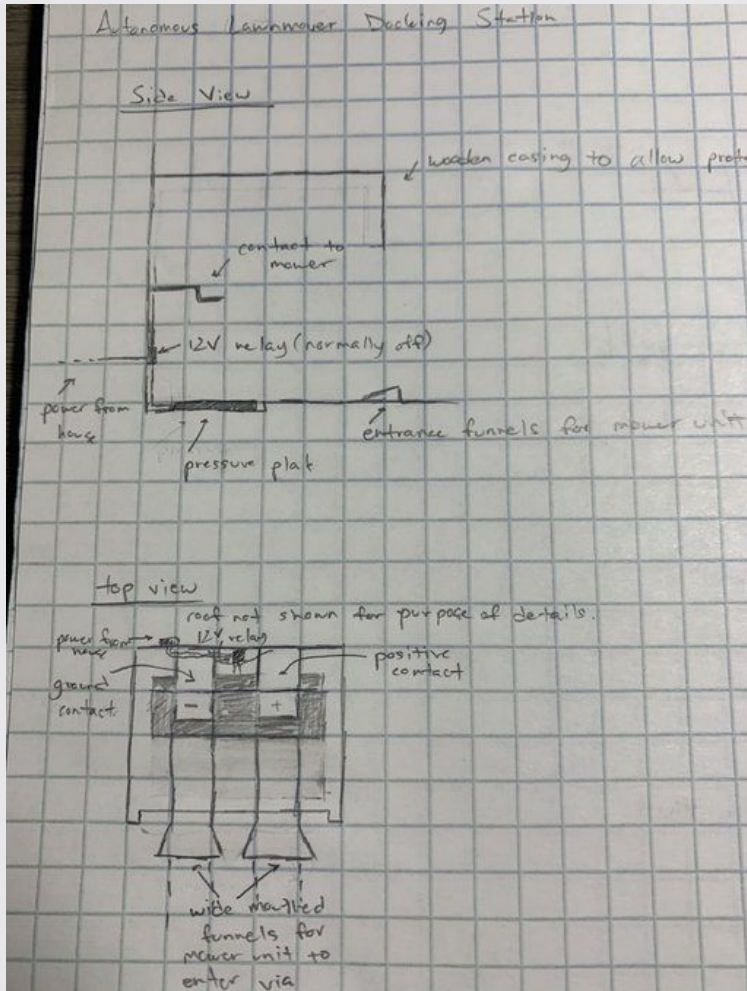 Autonomous Lawnmower Docking Station
Side View
wooden casing to allow prote
contact to
mower
12V relay (normally off)
power from
house
entrance funnels for mower unit
pressure plat
top view
roof not shown for purpose of details.
power from
house
12V relay
positive
contact
ground
contact
-
+
wide mouthed
funnels for
mower unit to
enter via